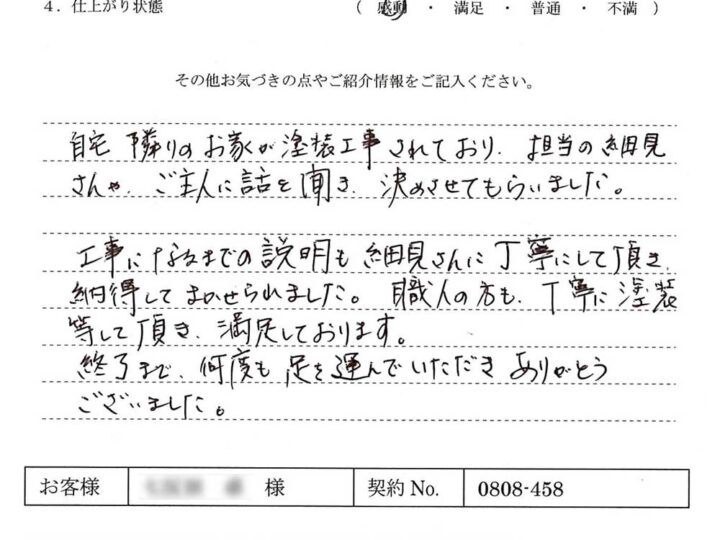 4．仕上がり状態 （ 感動 ・ 満足 ・ 普通 ・ 不満 ）
その他お気づきの点やご紹介情報をご記入ください。
自宅 隣りのお家が塗装工事されており、担当の細見
さんや、ご主人に話を聞き、決めさせてもらいました。
工事になるまでの説明も細見さんに丁寧にして頂き、
納得してまかせられました。職人の方も、丁寧に塗装
等して頂き、満足しております。
終了まで、何度も足を運んでいただきありがとう
ございました。
お客様 様 契約 No. 0808-458